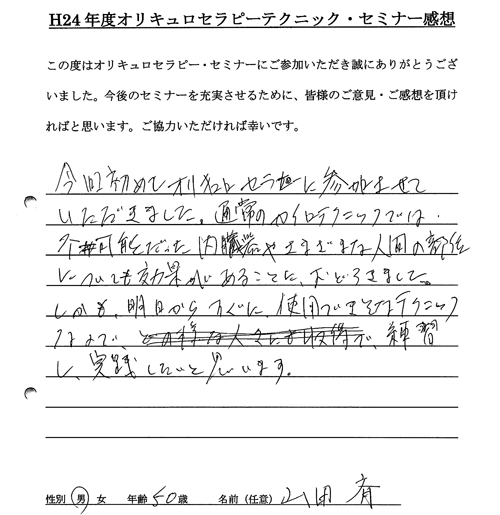 H24年度オリキュロセラピーテクニック・セミナー感想
この度はオリキュロセラピー・セミナーにご参加いただき誠にありがとうござ
いました。今後のセミナーを充実させるために、皆様のご意見・ご感想を頂け
ればと思います。ご協力いただければ幸いです。
今回初めてオリキュロセラピーに参加させて
いただきました。通常のカイロテクニックでは、
不可能だった内臓器やさまざまな人間の部位
についても効果があることに、おどろきました。
しかも、明日からすぐに、使用できそうなテクニック
なので、練習
し、実践したいと思います。
性別 男 女 年齢 50歳 名前(任意) 山田